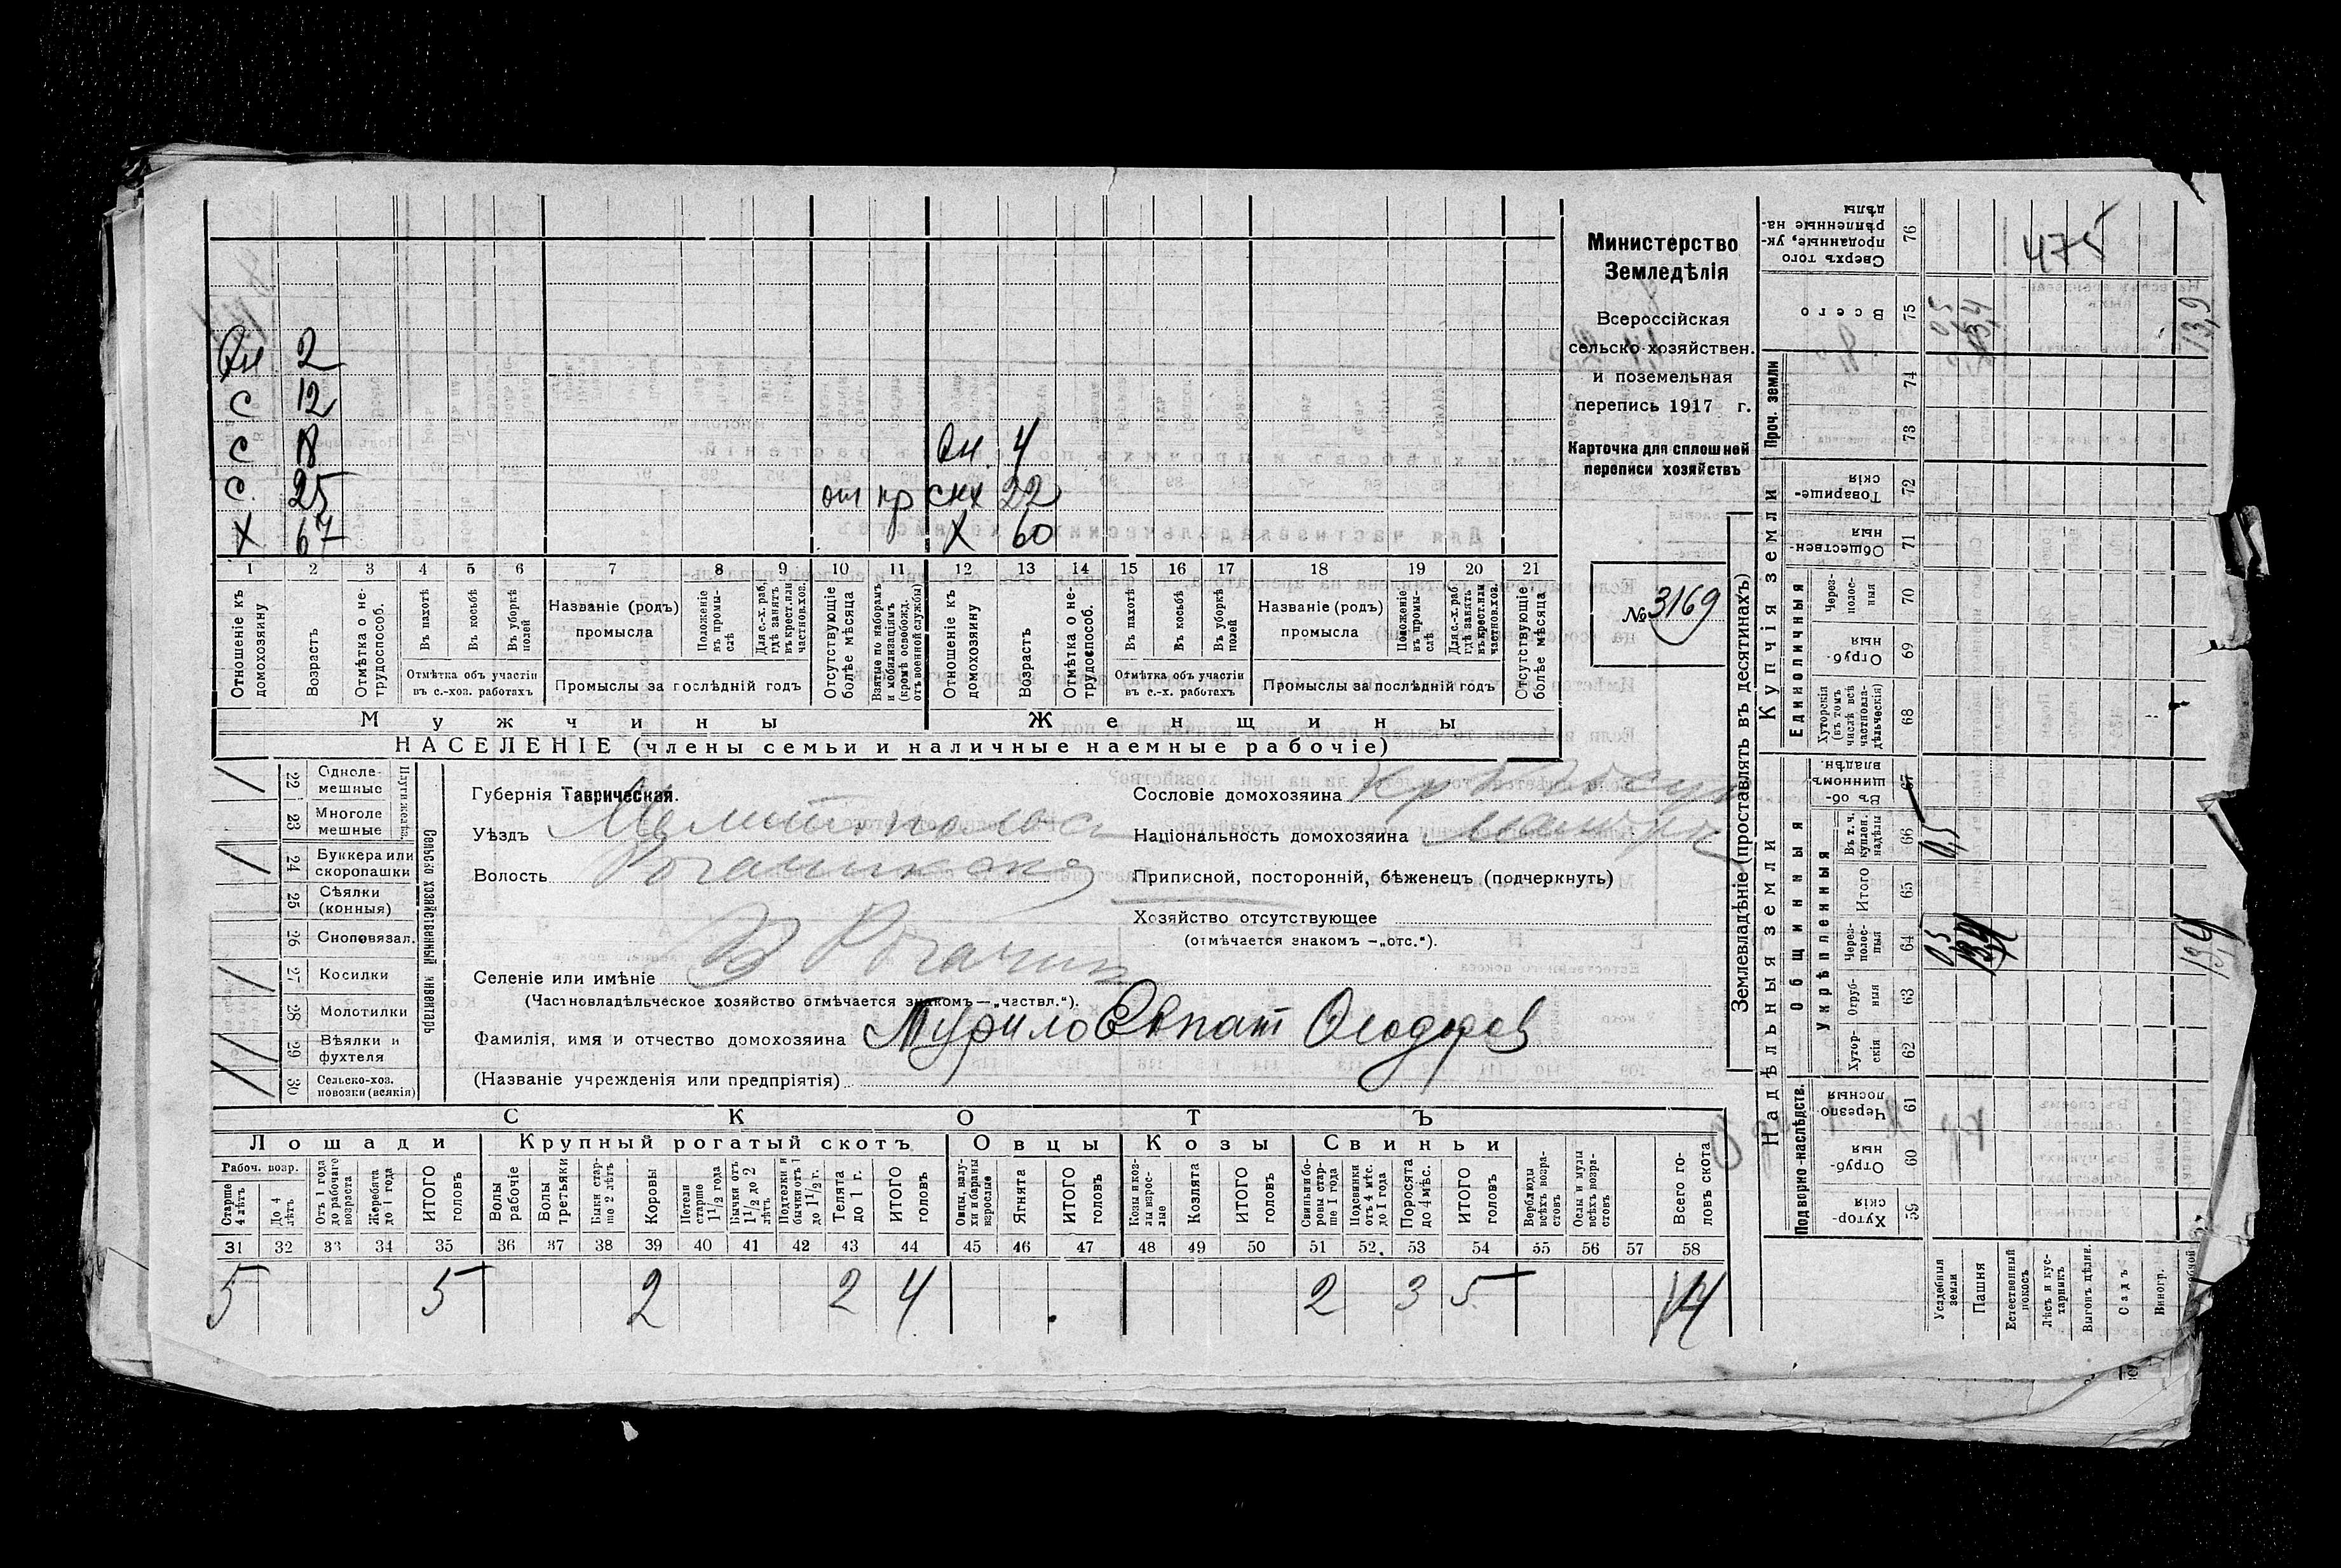 Вн 2
с 12
с 18
Вн. 4
с. 25 от пр снх 22
Х 67 Х 60
1 2 3 4 5 6 7 8 9 10 11 12 13 14 15 16 17 18 19 20 21
Отношеніе къ домохозяину
Возрастъ
Отмѣтка о нетрудоспособ.
Въ пахотѣ
Въ косьбѣ
Въ уборкѣ полей
Отмѣтка объ участіи въ с.-хоз. работахъ
Названіе (родъ) промысла
Положеніе въ промыслѣ
Для с.-х. раб. гдѣ занятъ въ крест. или частнов. хоз.
Промыслы за послѣдній годъ
Отсутствующіе болѣе мѣсяца
Взятые по наборамъ и мобилизаціямъ (кромѣ освобожд. отъ военной службы)
Отношеніе къ домохозяину
Возрастъ
Отмѣтка о нетрудоспособ.
Въ пахотѣ
Въ косьбѣ
Въ уборкѣ полей
Отмѣтка объ участіи въ с.-х. работахъ
Названіе (родъ) промысла
Положеніе въ промыслѣ
Для с.-х. раб. гдѣ занятъ въ крест. или частнов. хоз.
Промыслы за послѣдній годъ
Отсутствующіе болѣе мѣсяца
Мужчины Женщины
НАСЕЛЕНІЕ (члены семьи и наличные наемные рабочіе)
Министерство
Земледѣлія
Всероссійская
сельско-хозяйствен.
и поземельная
перепись 1917 г.
Карточка для сплошной
переписи хозяйствъ
№ 3169
Сельско хозяйственный инвентарь
22 Однолемешные
23 Многолемешные
24 Буккера или скоропашки
25 Сѣялки (конныя)
26 Сноповязал.
27 Косилки
28 Молотилки
29 Вѣялки и фухтеля
30 Сельско-хоз. повозки (всякія)
Губернія Таврическая.
Уѣздъ Мелитопольск
Волость Рогачикская
Селеніе или имѣніе В Рогачик
(Частновладѣльческое хозяйство отмѣчается знакомъ—„частвл.“).
Фамилія, имя и отчество домохозяина Турило Евпат Феодоров
(Названіе учрежденія или предпріятія)
Сословіе домохозяина
Національность домохозяина
Приписной, посторонній, бѣженецъ (подчеркнуть)
Хозяйство отсутствующее
(отмѣчается знакомъ —„отс.“).
СКОТЪ
Лошади Крупный рогатый скотъ Овцы Козы Свиньи
Рабоч. возр.
Старше 4 лѣтъ
До 4 лѣтъ
Отъ 1 года до рабочаго возраста
Жеребята до 1 года
ИТОГО головъ
Волы рабочіе
Волы третьяки
Быки старше 2 лѣтъ
Коровы
Нетели старше 1½ года
Бычки отъ 1½ до 2 лѣтъ
Подтелки и бычки отъ 1 до 1½ г.
Телята до 1 г.
ИТОГО головъ
Овцы, валухи и бараны взрослые
Ягнята
ИТОГО головъ
Козы и козлы взрослые
Козлята
ИТОГО головъ
Свиньи боровы старше 1 года
Подсвинки отъ 4 мѣс. до 1 года
Поросята до 4 мѣс.
ИТОГО головъ
Верблюды всѣхъ возрастовъ
Ослы и мулы всѣхъ возрастовъ
Всего головъ скота
31 32 33 34 35 36 37 38 39 40 41 42 43 44 45 46 47 48 49 50 51 52 53 54 55 56 57 58
5 5 2 2 4 2 3 5 14
Землевладѣніе (проставлять въ десятинахъ)
Надѣльныя земли
Купчія земли
Проч. земли
Подворно-наслѣдств.
Общинныя
Укрѣпленныя
Единоличныя
Сверхъ того проданные, укрѣпленные надѣлы 76 475
Всего 75 0,5 13,4 13,9
74
73
Товарищескія 72
Общественныя 71
Черезполосныя 70
Отрубныя 69
Хуторскія (въ томъ числѣ всѣ частновладѣльческія) 68
Въ общинномъ владѣн. 67
Въ т. ч. куплен. надѣлы 66 0,5
Итого 65
Черезполосныя 64 0,5 13,4 13,9
Отрубныя 63
Хуторскія 62
Черезполосныя 61
Отрубныя 60
Хуторскія 59
Усадебныя земли
Пашня
Естественный покосъ
Лѣсъ и кустарникъ
Выгонъ цѣлин.
Садъ
Виногр.